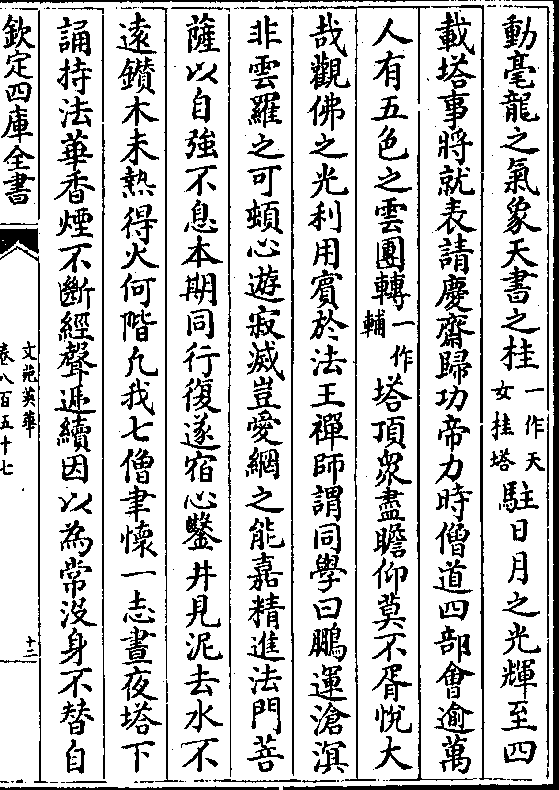 動毫龍之氣象天書之桂一作天女挂塔駐日月之光輝至四
載塔事將就表請慶齋歸功帝力時僧道四部㑹逾萬
人有五色之雲團轉一作輔塔頂衆盡瞻仰莫不胥悅大
哉觀佛之光利用賓於法王禪師謂同學曰鵬運滄溟
非雲羅之可頓心遊寂滅豈愛網之能嘉精進法門菩
薩以自強不息本期同行復遂宿心鑿井見泥去水不
遠鑽木未熱得火何階凢我七僧聿懷一志晝夜塔下
誦持法華香煙不斷經聲遞續因以為常沒身不替自
欽定四庫全書
文苑英華
卷八百五十七
十二